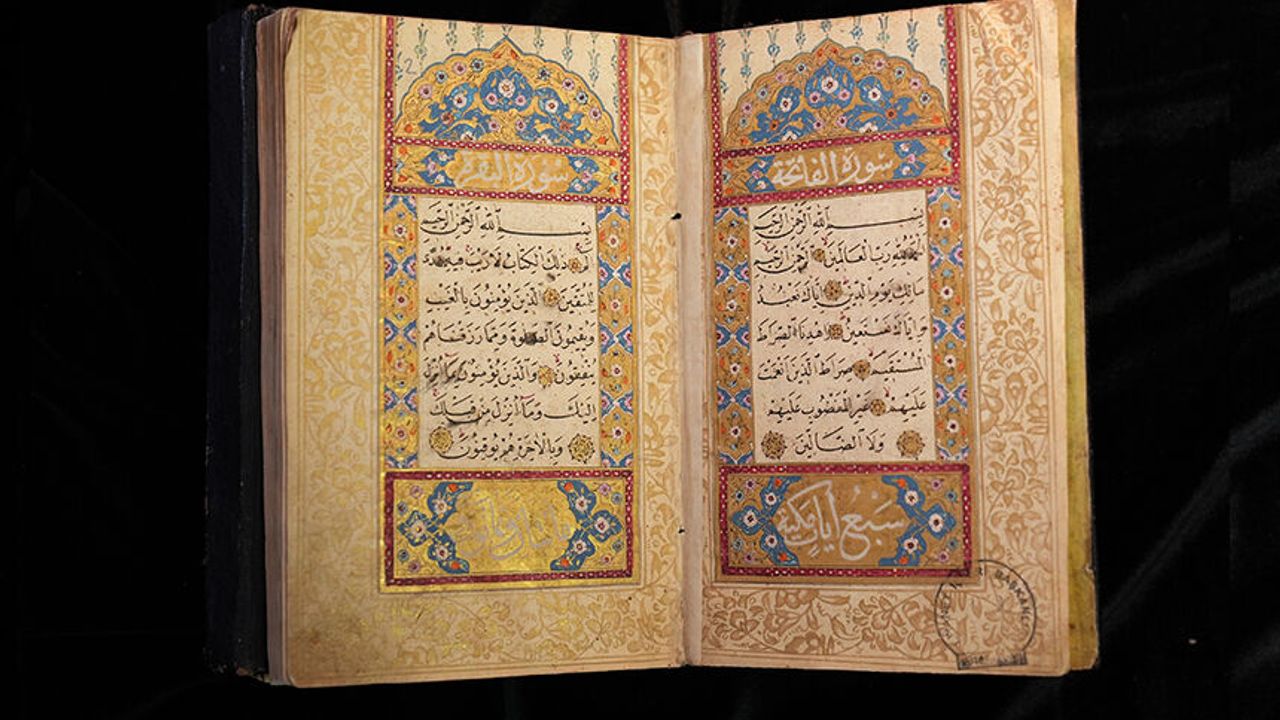 سورة الفاتحة
بسم الله الرحمن الرحيم
الحمد لله رب العالمين الرحمن الرحيم
مالك يوم الدين اياك نعبد
واياك نستعين اهدنا الصراط
المستقيم صراط الذين انعمت
عليهم غير المغضوب عليهم
ولا الضالين
سبع ايات مكية
سورة البقرة
بسم الله الرحمن الرحيم
الم ذلك الكتاب لا ريب فيه هدى
للمتقين الذين يؤمنون بالغيب
ويقيمون الصلوة ومما رزقناهم
ينفقون والذين يؤمنون بما انزل
اليك وما انزل من قبلك
وبالاخرة هم يوقنون
2